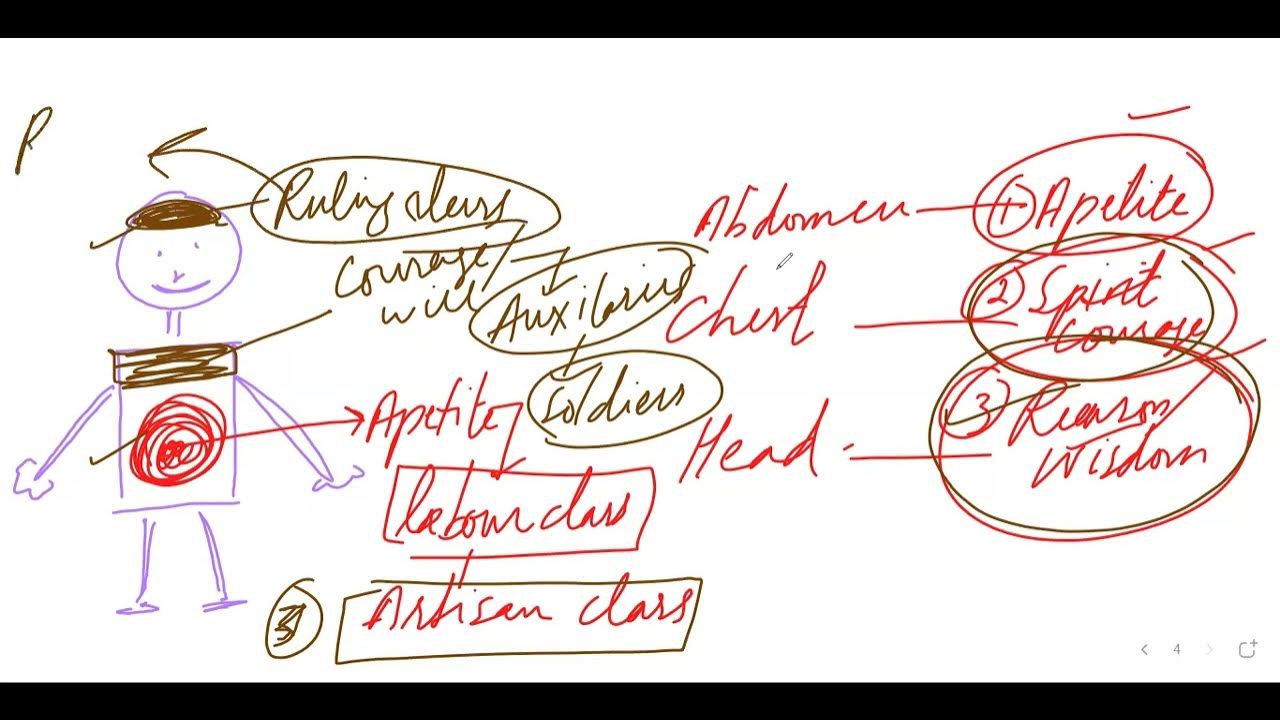 R
Ruling class
courage
will
Auxilaries
soldiers
Apetite
labour class
3
Artisan class
Abdomen
1 Apetite
Chest
2 Spirit
courage
Head
3 Reason
Wisdom
4